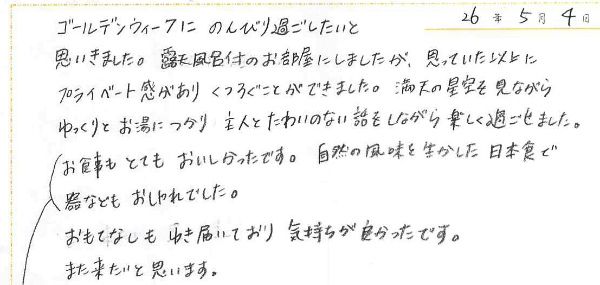 26年 5月 4日
ゴールデンウィークに のんびり過ごしたいと
思いきました。露天風呂付のお部屋にしましたが、思っていた以上に
プライベート感があり くつろぐことができました。満天の星空を見ながら
ゆっくりと お湯につかり 主人とたわいのない話をしながら 楽しく過ごせました。
お食事も とても おいしかったです。 自然の風味を生かした 日本食で
器なども おしゃれでした。
おもてなしも ゆき届いており 気持ちが良かったです。
また来たいと思います。